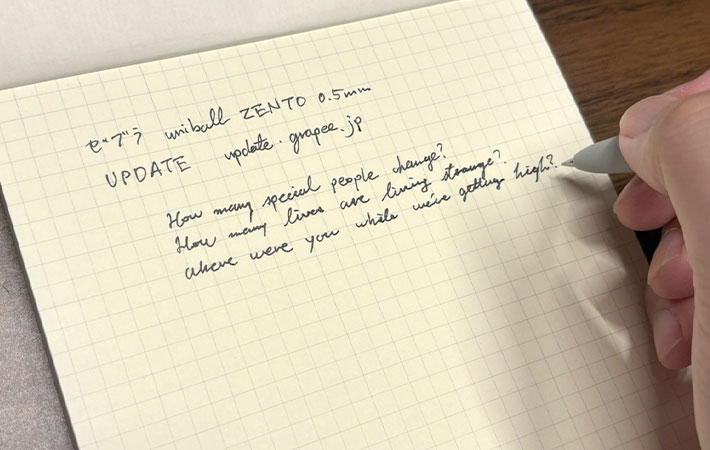 ゼブラ uniball ZENTO 0.5mm
UPDATE update.grapee.jp
How many special people change?
How many lives are living strange?
where were you while we're getting high?